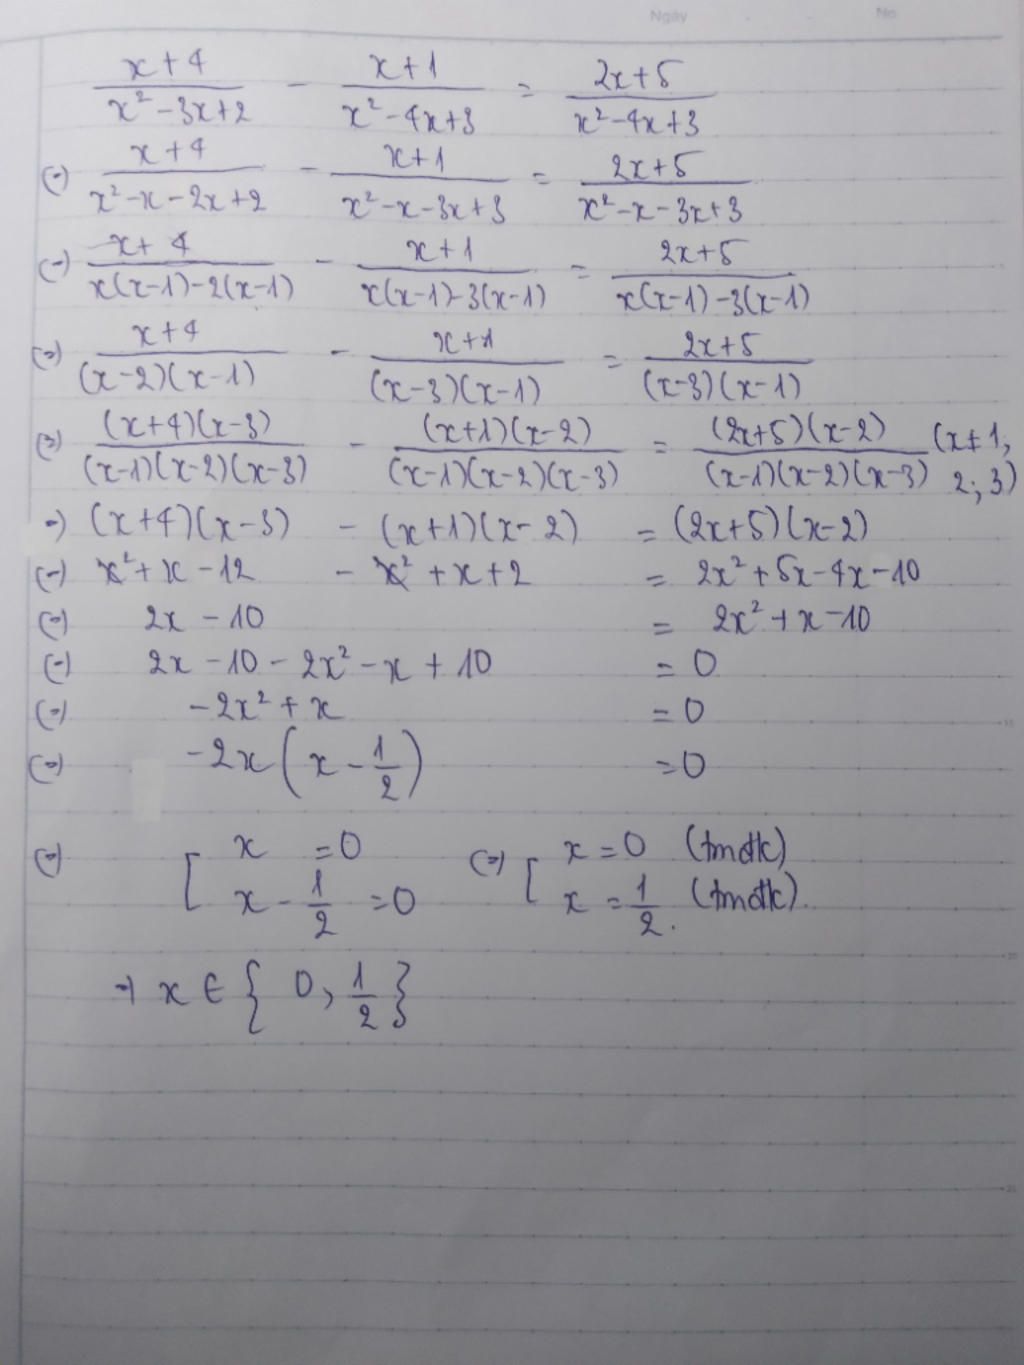 Ngày No
x+4/x²-3x+2 - x+1/x²-4x+3 = 2x+5/x²-4x+3
(=) x+4/x²-x-2x+2 - x+1/x²-x-3x+3 = 2x+5/x²-x-3x+3
(=) x+4/x(x-1)-2(x-1) - x+1/x(x-1)-3(x-1) = 2x+5/x(x-1)-3(x-1)
(=) x+4/(x-2)(x-1) - x+1/(x-3)(x-1) = 2x+5/(x-3)(x-1)
(=) (x+4)(x-3)/(x-1)(x-2)(x-3) - (x+1)(x-2)/(x-1)(x-2)(x-3) = (2x+5)(x-2)/(x-1)(x-2)(x-3) (x≠1; 2; 3)
=) (x+4)(x-3) - (x+1)(x-2) = (2x+5)(x-2)
(=) x²+x-12 - x²+x+2 = 2x²+5x-4x-10
(=) 2x-10 = 2x²+x-10
(=) 2x-10-2x²-x+10 = 0
(=) -2x²+x = 0
(=) -2x(x-1/2) = 0
(=) [ x = 0 (=) [ x = 0 (tmđk)
x - 1/2 = 0 x = 1/2. (tmđk).
=) x ∈ { 0, 1/2 }